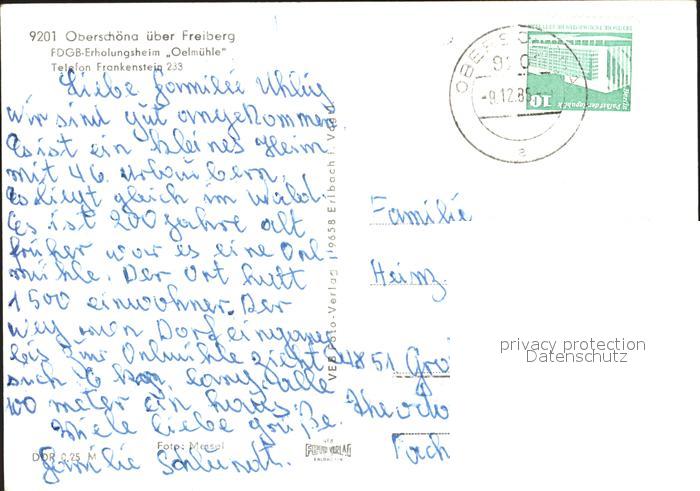 9201 Oberschöna über Freiberg
FDGB-Erholungsheim „Oelmühle"
Telefon Frankenstein 233
Liebe Familie Uhlig
wir sind gut angekommen
Es ist ein kleines Heim
mit 46 urlaubern,
es liegt gleich im wald.
Es ist 200 Jahre alt
früher war es eine Oel-
mühle. Der Ort hatt
1500 einwohner. Der
weg vom Dorf eingang
bis zur Oelmühle zieht
sich 6 km lang, alle
100 meter ein haus.
Viele liebe grüße.
Familie Schlundt.
DDR 0,25 M
Foto: Mensel
VEB Foto-Verlag 9658 Erlbach i. Vogtl.
OBERSCHÖNA
9201
-9.12.85
a
10
Berlin, Palast der Republik
Familie
Heinz
4851 Gro
Theodo
Fach
privacy protection
Datenschutz